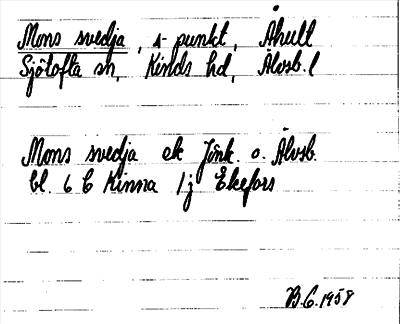 Mons svedja, s-punkt, Åhult
Sjötofta sn, Kinds hd, Älvsb. l
Mons svedja ek Jönk. o. Älvsb.
bl. 6 C Kinna 1j Ekefors
B.C. 1958